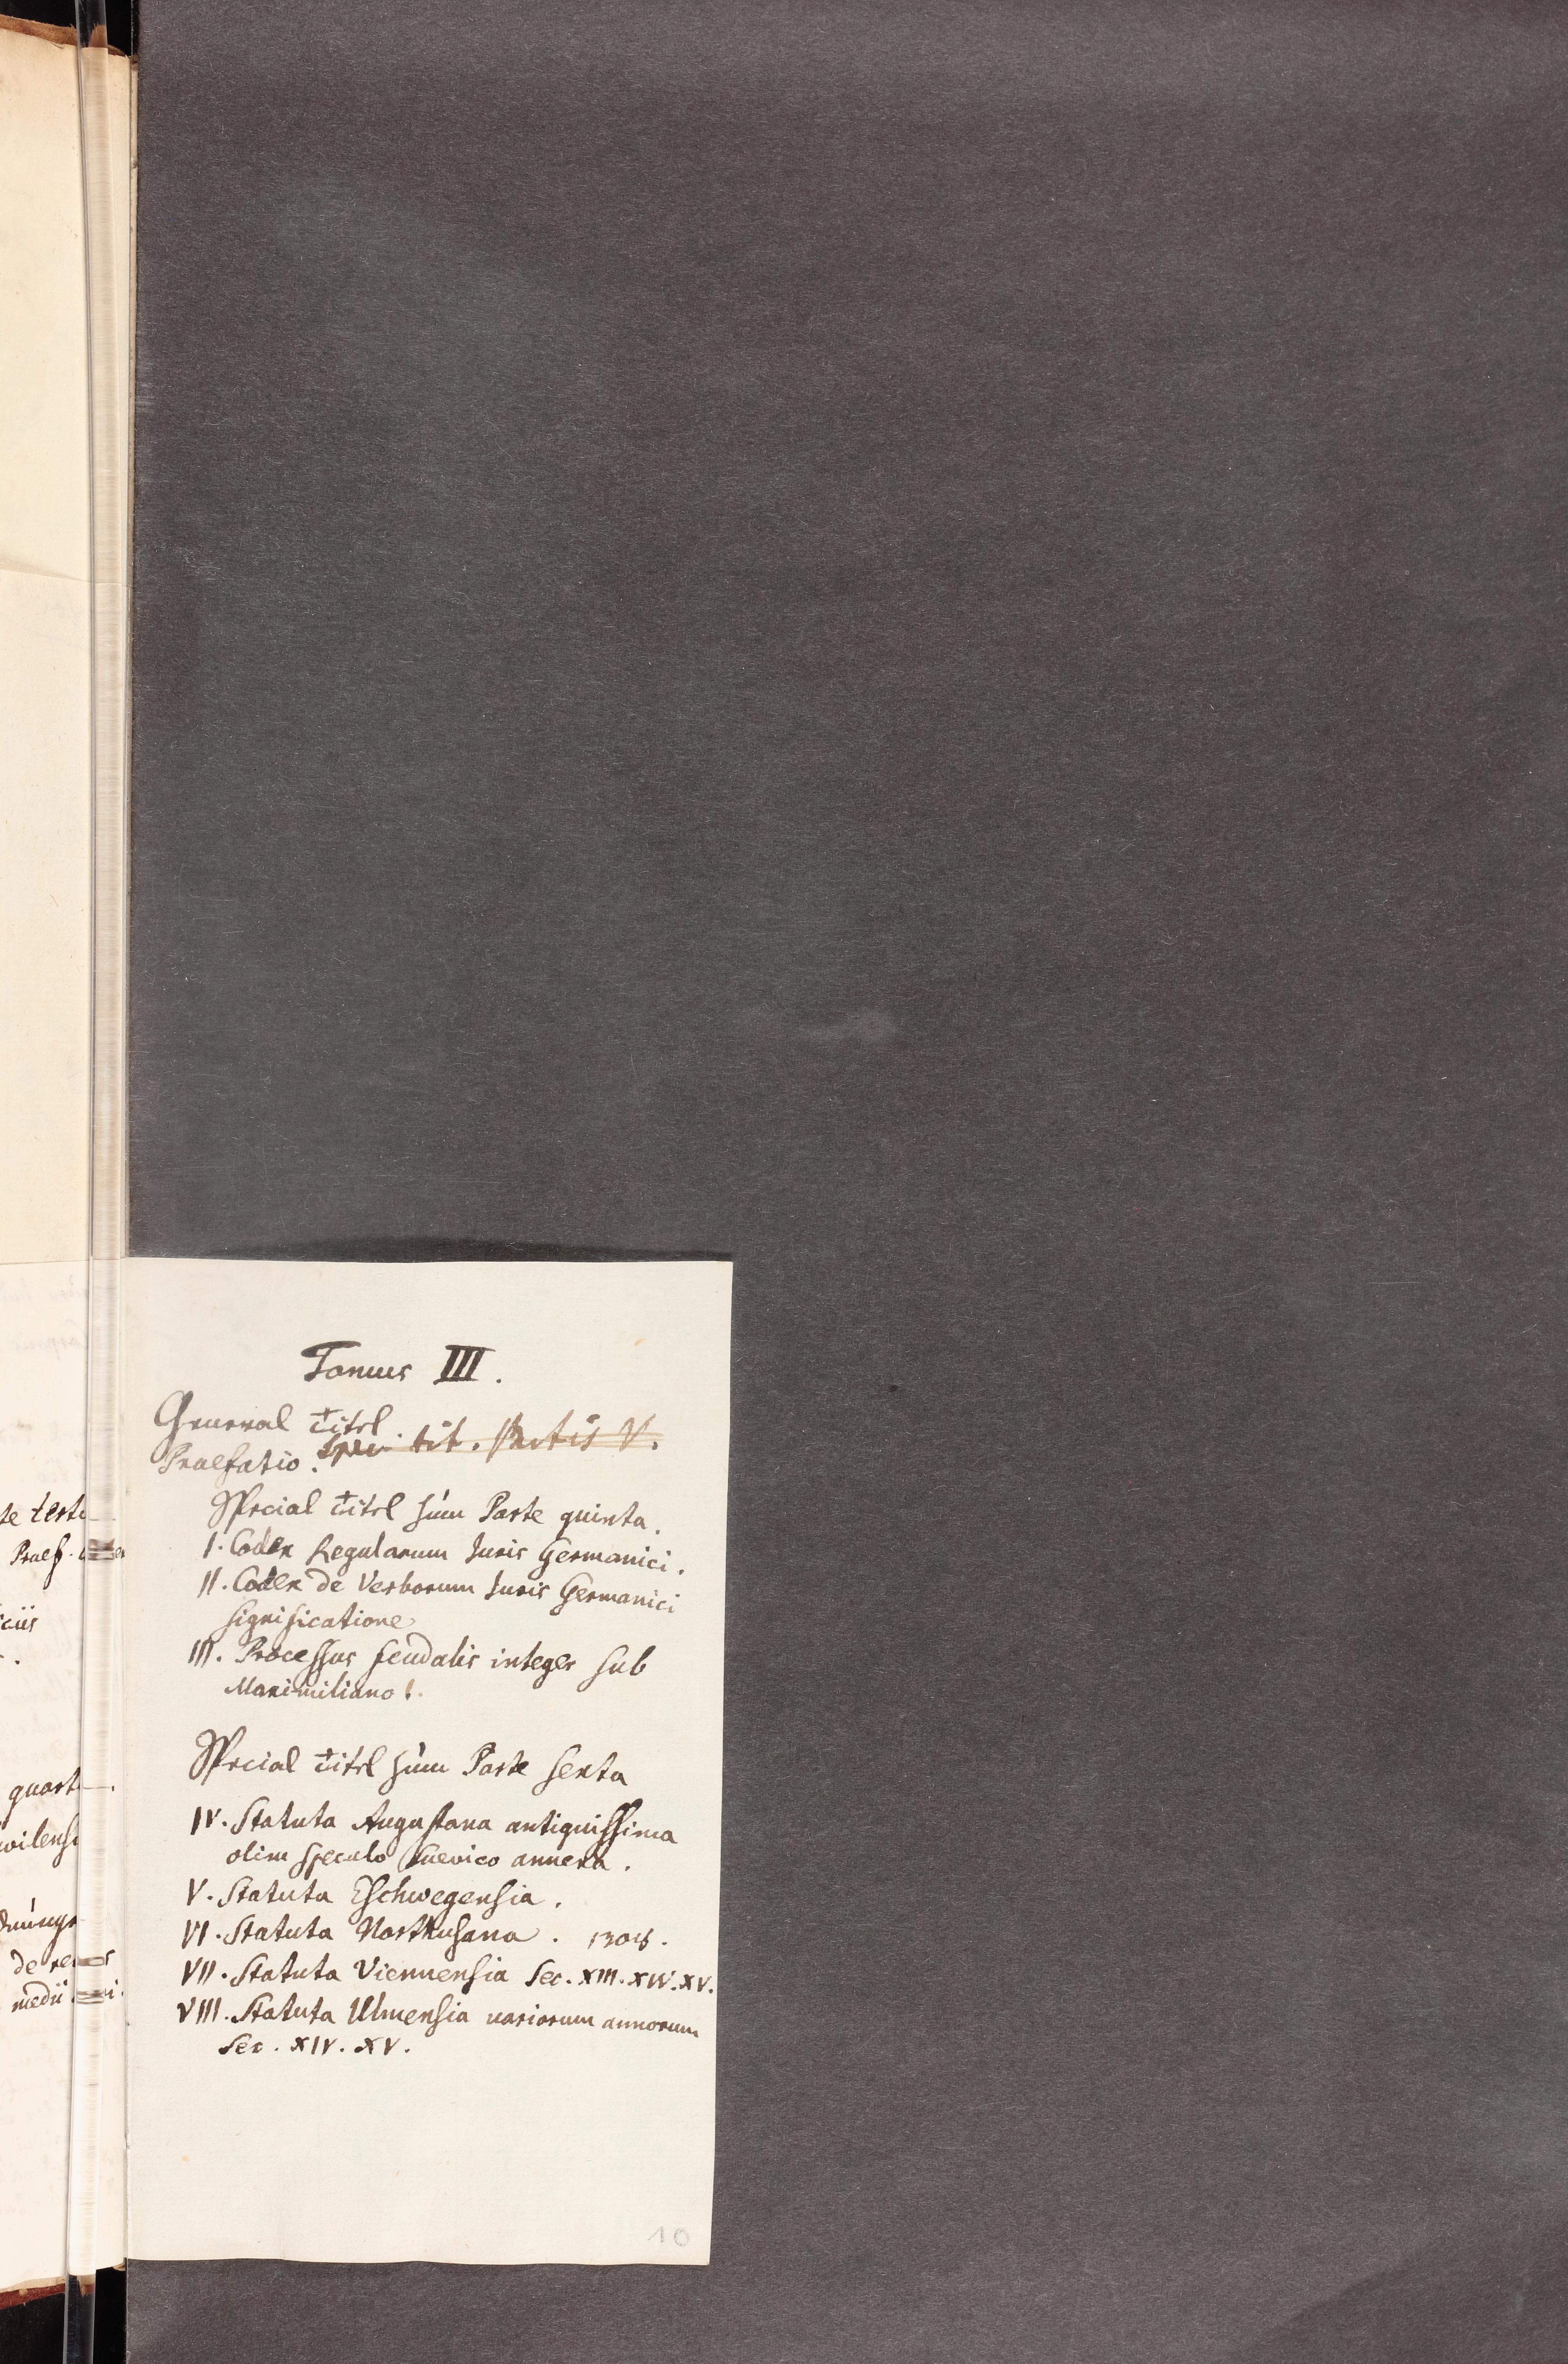 Tomus III.
General Titel.
Praefatio. Spec. tit. Partis V.
Special Titel zum Parte quinta.
I. Codex Regularum Juris Germanici.
II. Codex de Verborum Juris Germanici
significatione
III. Processus feudalis integer sub
Maximiliano I.
Special Titel zum Parte sexta
IV. Statuta Augustana antiquissima
olim speculo Suevico annexa.
V. Statuta Eschwegensia.
VI. Statuta Northusana. 1308.
VII. Statuta Viennensia Sec. XIII. XIV. XV.
VIII. Statuta Ulmensia variorum annorum
Sec. XIV. XV.
10
te
Praef.
ciis
quart
de
medii